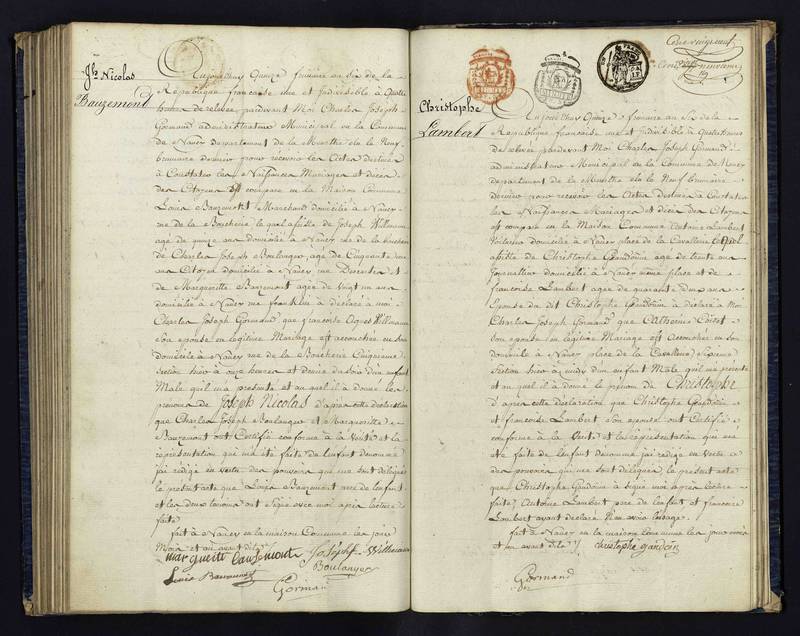 Jh Nicolas
Bauzemont
Aujourd'huy Quinze frimaire an Six de la
République francoise une et Indivisible à Quatre
heures de relevée pardevant Moi Charles Joseph
Gormand administrateur Municipal de la Commune
de Nancy departement de la Meurthe élu le Neuf
brumaire dernier pour recevoir les Actes destinés
à Constater les Naissances Mariages et décès
des Citoyens est comparu en la Maison Commune
Louis Bauzemont Marchand domicilié à Nancy
rue de la Boucherie lequel assisté de Joseph Willemain
agé de quinze ans domicilié à Nancy rue de la boucherie
de Charles Joseph Boulanger agé de Cinquante
ans Citoyen domicilié à Nancy rue et
de Margueritte Bauzemont agée de vingt un ans
domiciliée à Nancy rue franklin à déclaré à moi
Charles Joseph Gormand que françoise Agnes Willemain
son épouse en légitime Mariage est accouchée en son
domicile à Nancy rue de la Boucherie Cinquieme
Section hier à onze heures et demie du soir d'un enfant
Male qu'il m'a presenté et auquel il à donné les
prénoms de Joseph Nicolas d'après cette déclaration
que Charles Joseph Boulanger et Margueritte
Bauzemont ont Certifié conforme à la Vérité et la
représentation qui m'a été faite de l'enfant denommé
j'ai rédigé en vertu des pouvoirs qui me sont délégués
le présent acte que Louis Bauzemont pere de l'enfant
et les deux témoins ont Signé avec moi après lecture
faite
fait à Nancy en la maison Commune les jour
Mois et an avant dits
marguerite bausemont Joseph Willemain
Louis Bauzemont Boulanger
Gormand
Christophe
Lambert
Aujourd'huy Quinze frimaire an Six de la
République francoise une et Indivisible à Quatre heures
de relevée pardevant Moi Charles Joseph Gormand
administrateur Municipal de la Commune de Nancy
departement de la Meurthe élu le Neuf brumaire
dernier pour recevoir les Actes destinés à Constater
les Naissances Mariages et décès des Citoyens
est comparu en la Maison Commune Antoine Lambert
Voiturier domicilié à Nancy place de la Cavallerie lequel
assisté de Christophe Gandoin agé de trente ans
Journallier domicilié à Nancy même place et de
francoise Lambert agée de quarante ans
Epouse du dit Christophe Gandoin à déclaré à Moi
Charles Joseph Gormand que Catherine
son épouse en légitime Mariage est Accouchée en son
domicile à Nancy place de la Cavallerie Septieme
Section hier à midy d'un Enfant Male qu'il m'a presenté
et auquel il à donné le prénom de Christophe
d'après cette déclaration que Christophe Gandoin
et francoise Lambert son épouse ont Certifié
conforme à la Vérité et la représentation qui m'a
été faite de l'enfant denommé j'ai rédigé en vertu
des pouvoirs qui me sont délégués le présent acte
que Christophe Gandoin à signé avec moi après lecture
faite Antoine Lambert pere de l'enfant et francoise
Lambert ayant déclaré n'en avoir l'usage
fait à Nancy en la maison Commune les jour mois
et an avant dits christophe gandoin
Gormand